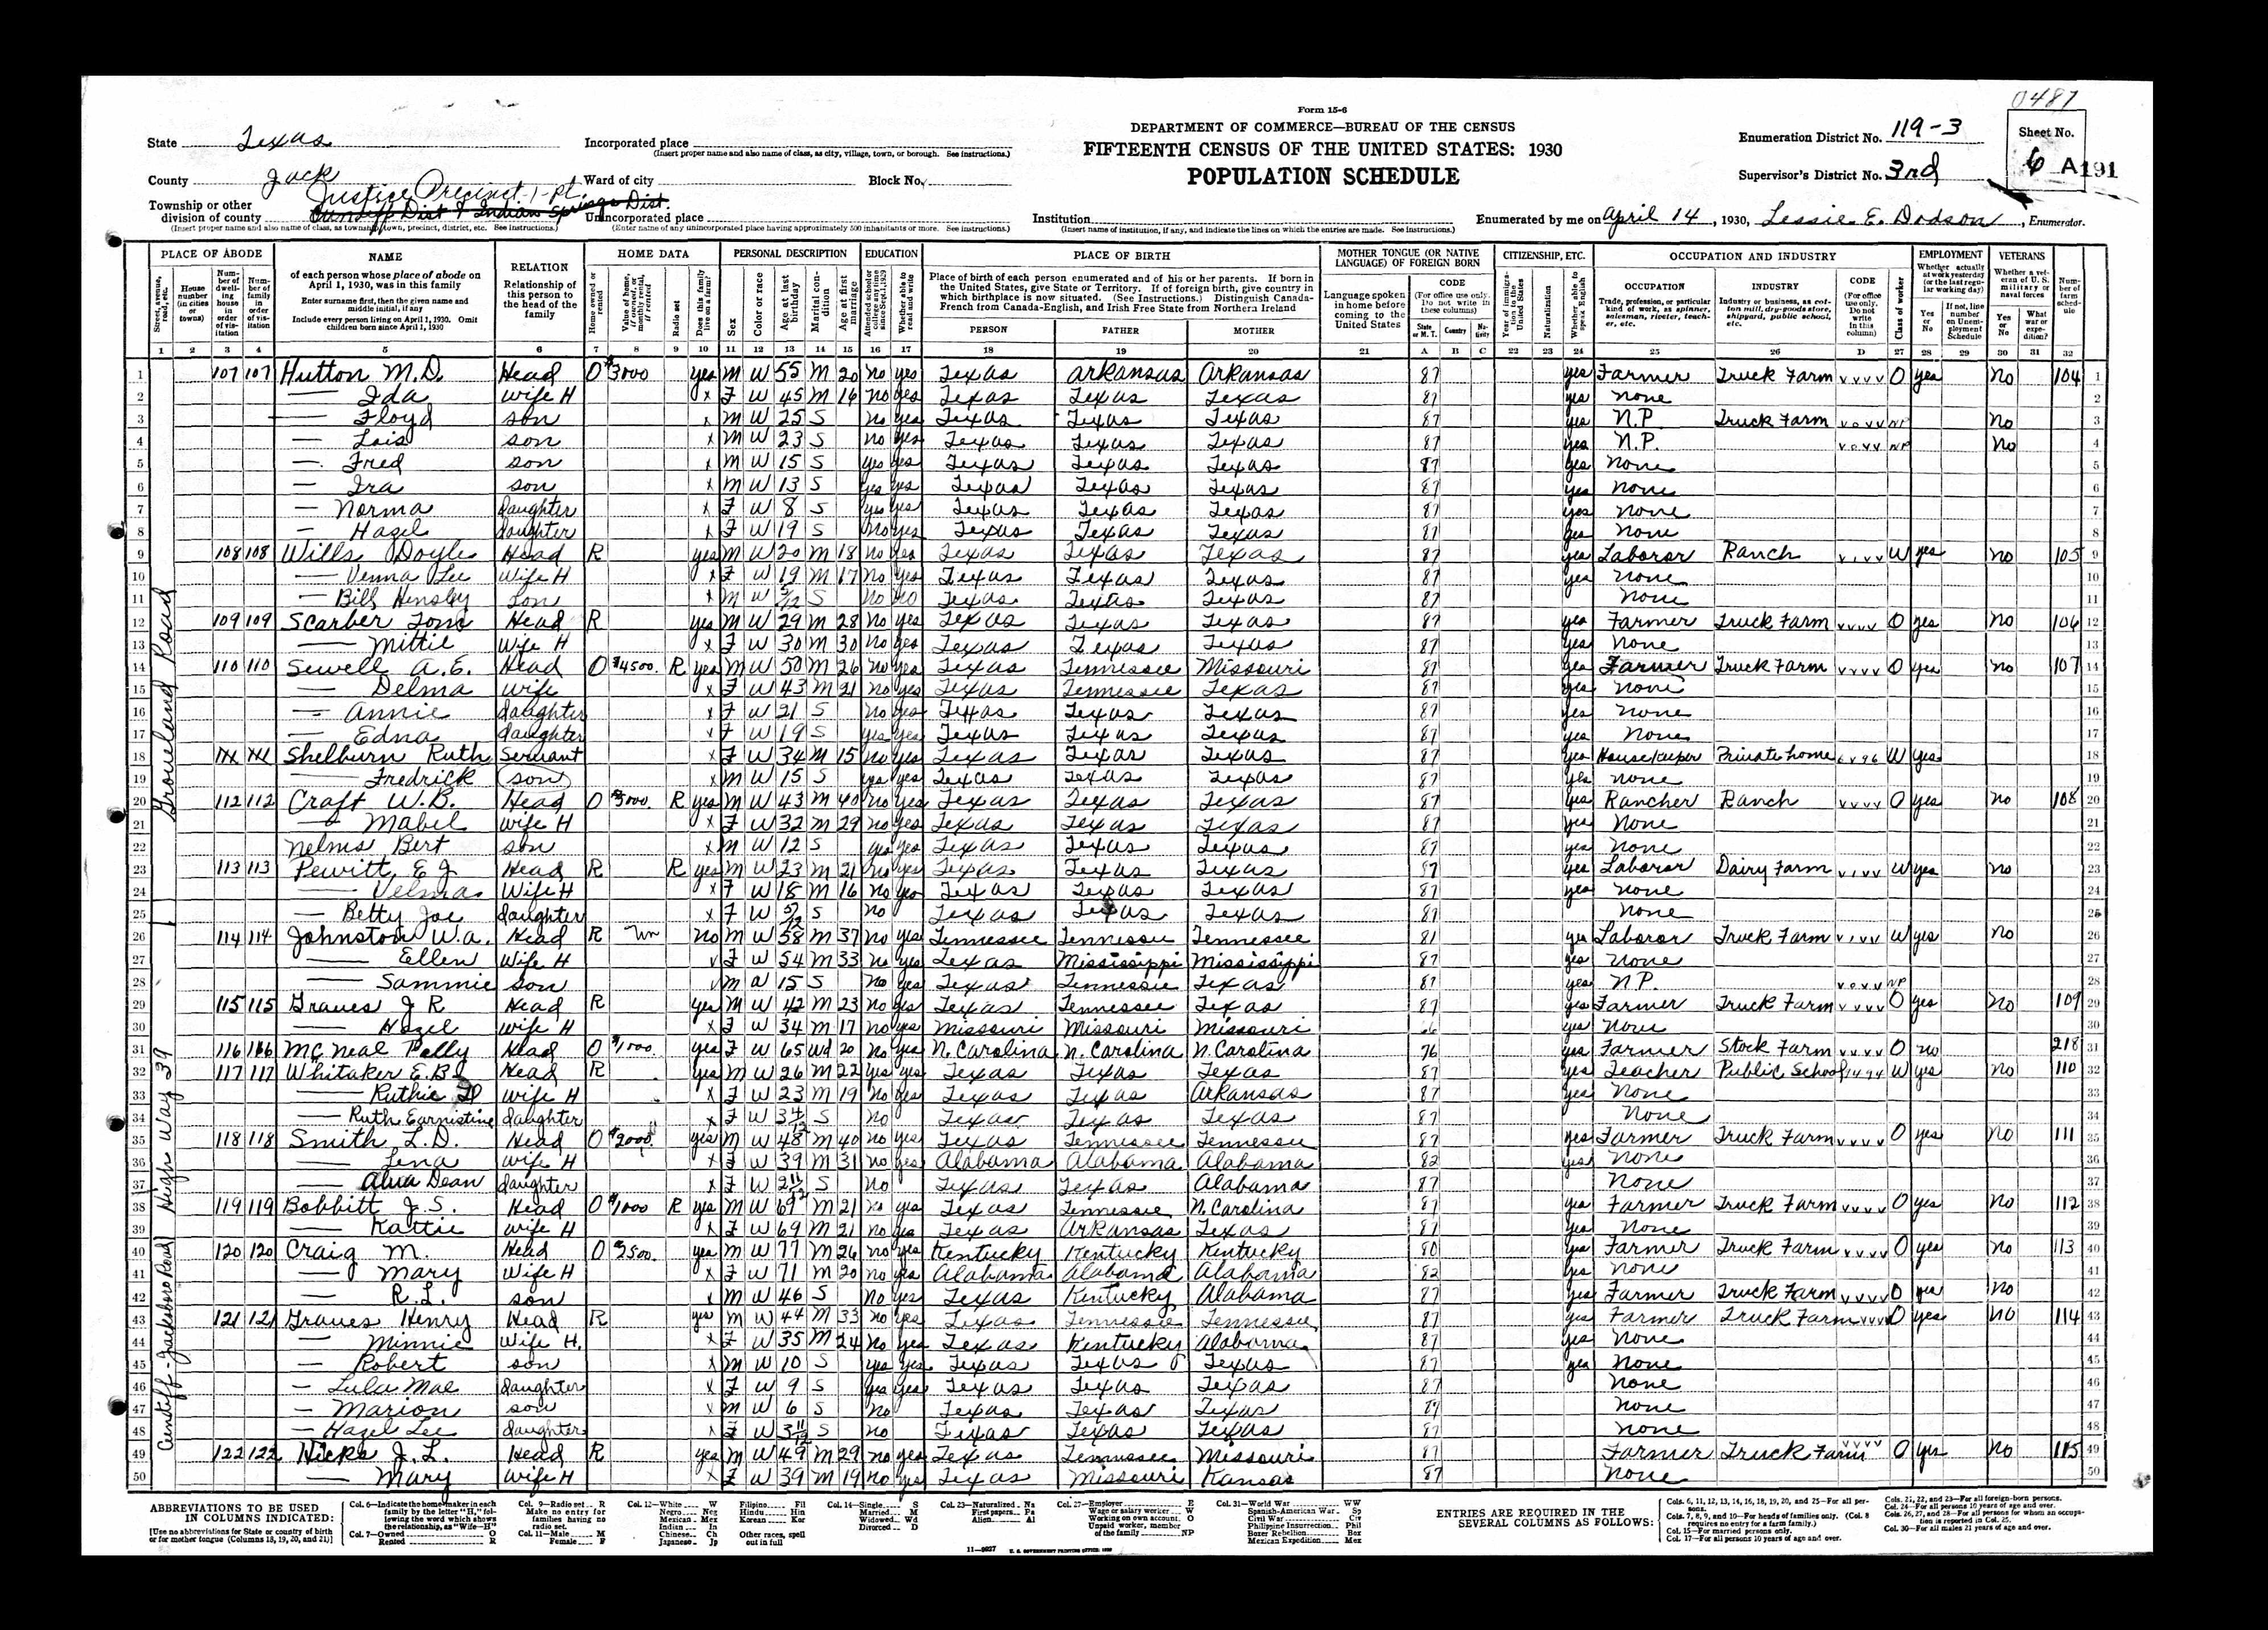 0487
Form 15-6
DEPARTMENT OF COMMERCE—BUREAU OF THE CENSUS
FIFTEENTH CENSUS OF THE UNITED STATES: 1930
POPULATION SCHEDULE
State Texas
Incorporated place
(Insert proper name and also name of class, as city, village, town, or borough. See instructions.)
Enumeration District No. 119-3
Sheet No.
6 A 191
County Jack
Ward of city
Block No.
Supervisor's District No. 3rd
Justice Precinct-1-Pt.
Township or other division of county Cundiff Dist & Indian Springs Dist.
(Insert proper name and also name of class, as township, town, precinct, district, etc. See instructions.)
Unincorporated place
(Enter name of any unincorporated place having approximately 500 inhabitants or more. See instructions.)
Institution
(Insert name of institution, if any, and indicate the lines on which the entries are made. See instructions.)
Enumerated by me on April 14, 1930, Lessie E. Dodson, Enumerator.
PLACE OF ABODE NAME RELATION HOME DATA PERSONAL DESCRIPTION EDUCATION PLACE OF BIRTH MOTHER TONGUE (OR NATIVE LANGUAGE) OF FOREIGN BORN CITIZENSHIP, ETC. OCCUPATION AND INDUSTRY EMPLOYMENT VETERANS
PERSON FATHER MOTHER
1 2 3 4 5 6 7 8 9 10 11 12 13 14 15 16 17 18 19 20 21 A B C 22 23 24 25 26 D 27 28 29 30 31 32
Groveland Road
High Way 39
Cundiff-Jacksboro Road
1 107 107 Hutton M.D. Head O $3000 yes M W 55 M 20 no yes Texas Arkansas Arkansas 87 yes Farmer Truck Farm VVVV O yes no 104 1
2 — Ida wife H x F W 45 M 16 no yes Texas Texas Texas 87 yes none 2
3 — Floyd son x M W 25 S no yes Texas Texas Texas 87 yes N.P. Truck Farm VOVV NP No 3
4 — Lois son x M W 23 S no yes Texas Texas Texas 87 yes N.P. VOVV NP No 4
5 — Fred son x M W 15 S yes yes Texas Texas Texas 87 yes none 5
6 — Ira son x M W 13 S yes yes Texas Texas Texas 87 yes none 6
7 — Norma daughter x F W 8 S yes yes Texas Texas Texas 87 yes none 7
8 — Hazel daughter x F W 19 S no yes Texas Texas Texas 87 yes none 8
9 108 108 Wills Doyle Head R yes M W 20 M 18 no yes Texas Texas Texas 87 yes Laborar Ranch V1VV W yes no 105 9
10 — Venna Lee Wife H x F W 19 M 17 no yes Texas Texas Texas 87 yes none 10
11 — Bill Hensley Son x M W /12 S no no Texas Texas Texas 87 none 11
12 109 109 Scarber Tom Head R yes M W 29 M 28 no yes Texas Texas Texas 87 yes Farmer Truck Farm VVVV O yes no 106 12
13 — Mittie Wife H x F W 30 M 30 no yes Texas Texas Texas 87 yes none 13
14 110 110 Sewell A.E. Head O $4500. R yes M W 50 M 26 no yes Texas Tennessee Missouri 87 yes Farmer Truck Farm VVVV O yes no 107 14
15 — Delma wife x F W 43 M 21 no yes Texas Tennessee Texas 87 yes none 15
16 — Annie daughter x F W 21 S no yes Texas Texas Texas 87 yes none 16
17 — Edna daughter x F W 19 S yes yes Texas Texas Texas 87 yes none 17
18 Shelburn Ruth Servant x F W 34 M 15 no yes Texas Texas Texas 87 yes Housekeeper Private home 6V96 W yes 18
19 — Fredrick (son) x M W 15 S yes yes Texas Texas Texas 87 yes none 19
20 112 112 Craft W.B. Head O $5000. R yes M W 43 M 40 no yes Texas Texas Texas 87 yes Rancher Ranch VVVV O yes no 108 20
21 — Mabel wife H x F W 32 M 29 no yes Texas Texas Texas 87 yes None 21
22 Nelms Bert son x M W 12 S yes yes Texas Texas Texas 87 yes None 22
23 113 113 Pewitt E J Head R R yes M W 23 M 21 no yes Texas Texas Texas 87 yes Laborar Dairy Farm V1VV W yes no 23
24 — Velma Wife H x F W 18 M 16 no yes Texas Texas Texas 87 yes none 24
25 — Betty Joe daughter x F W 5/12 S no Texas Texas Texas 87 none 25
26 114 114 Johnston W.a. Head R Un no M W 58 M 37 no yes Tennessee Tennessee Tennessee 81 yes Laborar Truck Farm V1VV W yes no 26
27 — Ellen Wife H v F W 54 M 33 no yes Texas Mississippi Mississippi 87 yes none 27
28 — Sammie son v m a 15 S no yes Texas Tennessee Texas 87 yes N P. VOVV NP 28
29 115 115 Graves J R Head R yes M W 42 M 23 no yes Texas Tennessee Texas 87 yes Farmer Truck Farm VVVV O yes no 109 29
30 — Hazel wife H x F W 34 M 17 no yes Missouri Missouri Missouri 66 yes none 30
31 116 116 McNeal Polly Head O $1000. yes F W 65 Wd 20 no yes N. Carolina N. Carolina N. Carolina 76 yes Farmer Stock Farm VVVV O no 218 31
32 117 117 Whitaker E.B. Head R yes M W 26 M 22 yes yes Texas Texas Texas 87 yes Teacher Public School 1494 W yes no 110 32
33 — Ruthie wife H x F W 23 M 19 no yes Texas Texas Arkansas 87 yes None 33
34 — Ruth Earnistine daughter x F W 3 4/12 S no Texas Texas Texas 87 None 34
35 118 118 Smith L.D. Head O $2000. yes M W 48 M 40 no yes Texas Tennessee Tennessee 87 yes Farmer Truck Farm VVVV O yes no 111 35
36 — Lena wife H x F W 39 M 31 no yes Alabama Alabama Alabama 82 yes none 36
37 — Alva Dean daughter x F W 2 11/12 S no Texas Texas Alabama 87 None 37
38 119 119 Bobbitt J.S. Head O $1000 R yes M W 69 M 21 no yes Texas Tennessee N. Carolina 87 yes Farmer Truck Farm VVVV O yes no 112 38
39 — Kattie wife H x F W 69 M 21 no yes Texas Arkansas Texas 87 yes None 39
40 120 120 Craig M. Head O $2500. yes M W 77 M 26 no yes Kentucky Kentucky Kentucky 80 yes Farmer Truck Farm VVVV O yes no 113 40
41 — Mary Wife H x F W 71 M 20 no yes Alabama Alabama Alabama 82 yes none 41
42 — R.L. son x M W 46 S no yes Texas Kentucky Alabama 87 yes Farmer Truck Farm VVVV O yes no 42
43 121 121 Graves Henry Head R yes M W 44 M 33 no yes Texas Tennessee Tennessee 87 yes Farmer Truck Farm VVVV O yes no 114 43
44 — Minnie Wife H. x F W 35 M 24 no yes Texas Kentucky Alabama 87 yes None 44
45 — Robert son x M W 10 S yes yes Texas Texas Texas 87 yes None 45
46 — Lula Mae daughter x F W 9 S yes yes Texas Texas Texas 87 None 46
47 — Marion son x M W 6 S no Texas Texas Texas 87 None 47
48 — Hazel Lee daughter x F W 3 11/12 S no Texas Texas Texas 87 none 48
49 122 122 Hicks J.L. Head R yes M W 49 M 29 no yes Texas Tennessee Missouri 87 Farmer Truck Farm VVVV O yes no 115 49
50 — Mary wife H x F W 39 M 19 no yes Texas Missouri Kansas 87 none 50
ABBREVIATIONS TO BE USED IN COLUMNS INDICATED:
[Use no abbreviations for State or country of birth or for mother tongue (Columns 18, 19, 20, and 21)]
Col. 6—Indicate the home-maker in each family by the letter "H," following the word which shows the relationship, as "Wife—H"
Col. 7—Owned O Rented R
Col. 9—Radio set R Make no entry for families having no radio set.
Col. 11—Male M Female F
Col. 12—White W Negro Neg Mexican Mex Indian In Chinese Ch Japanese Jp Filipino Fil Hindu Hin Korean Kor Other races, spell out in full
Col. 14—Single S Married M Widowed Wd Divorced D
Col. 23—Naturalized Na First papers Pa Alien Al
Col. 27—Employer E Wage or salary worker W Working on own account O Unpaid worker, member of the family NP
Col. 31—World War WW Spanish-American War Sp Civil War Civ Philippine Insurrection Phil Boxer Rebellion Box Mexican Expedition Mex
ENTRIES ARE REQUIRED IN THE SEVERAL COLUMNS AS FOLLOWS:
Cols. 6, 11, 12, 13, 14, 16, 18, 19, 20, and 25—For all persons.
Cols. 7, 8, 9, and 10—For heads of families only. (Col. 8 requires no entry for a farm family.)
Col. 15—For married persons only.
Col. 17—For all persons 10 years of age and over.
Cols. 21, 22, and 23—For all foreign-born persons.
Col. 24—For all persons 10 years of age and over.
Cols. 26, 27, and 28—For all persons for whom an occupation is reported in Col. 25.
Col. 30—For all males 21 years of age and over.
11—6927 U. S. GOVERNMENT PRINTING OFFICE: 1930